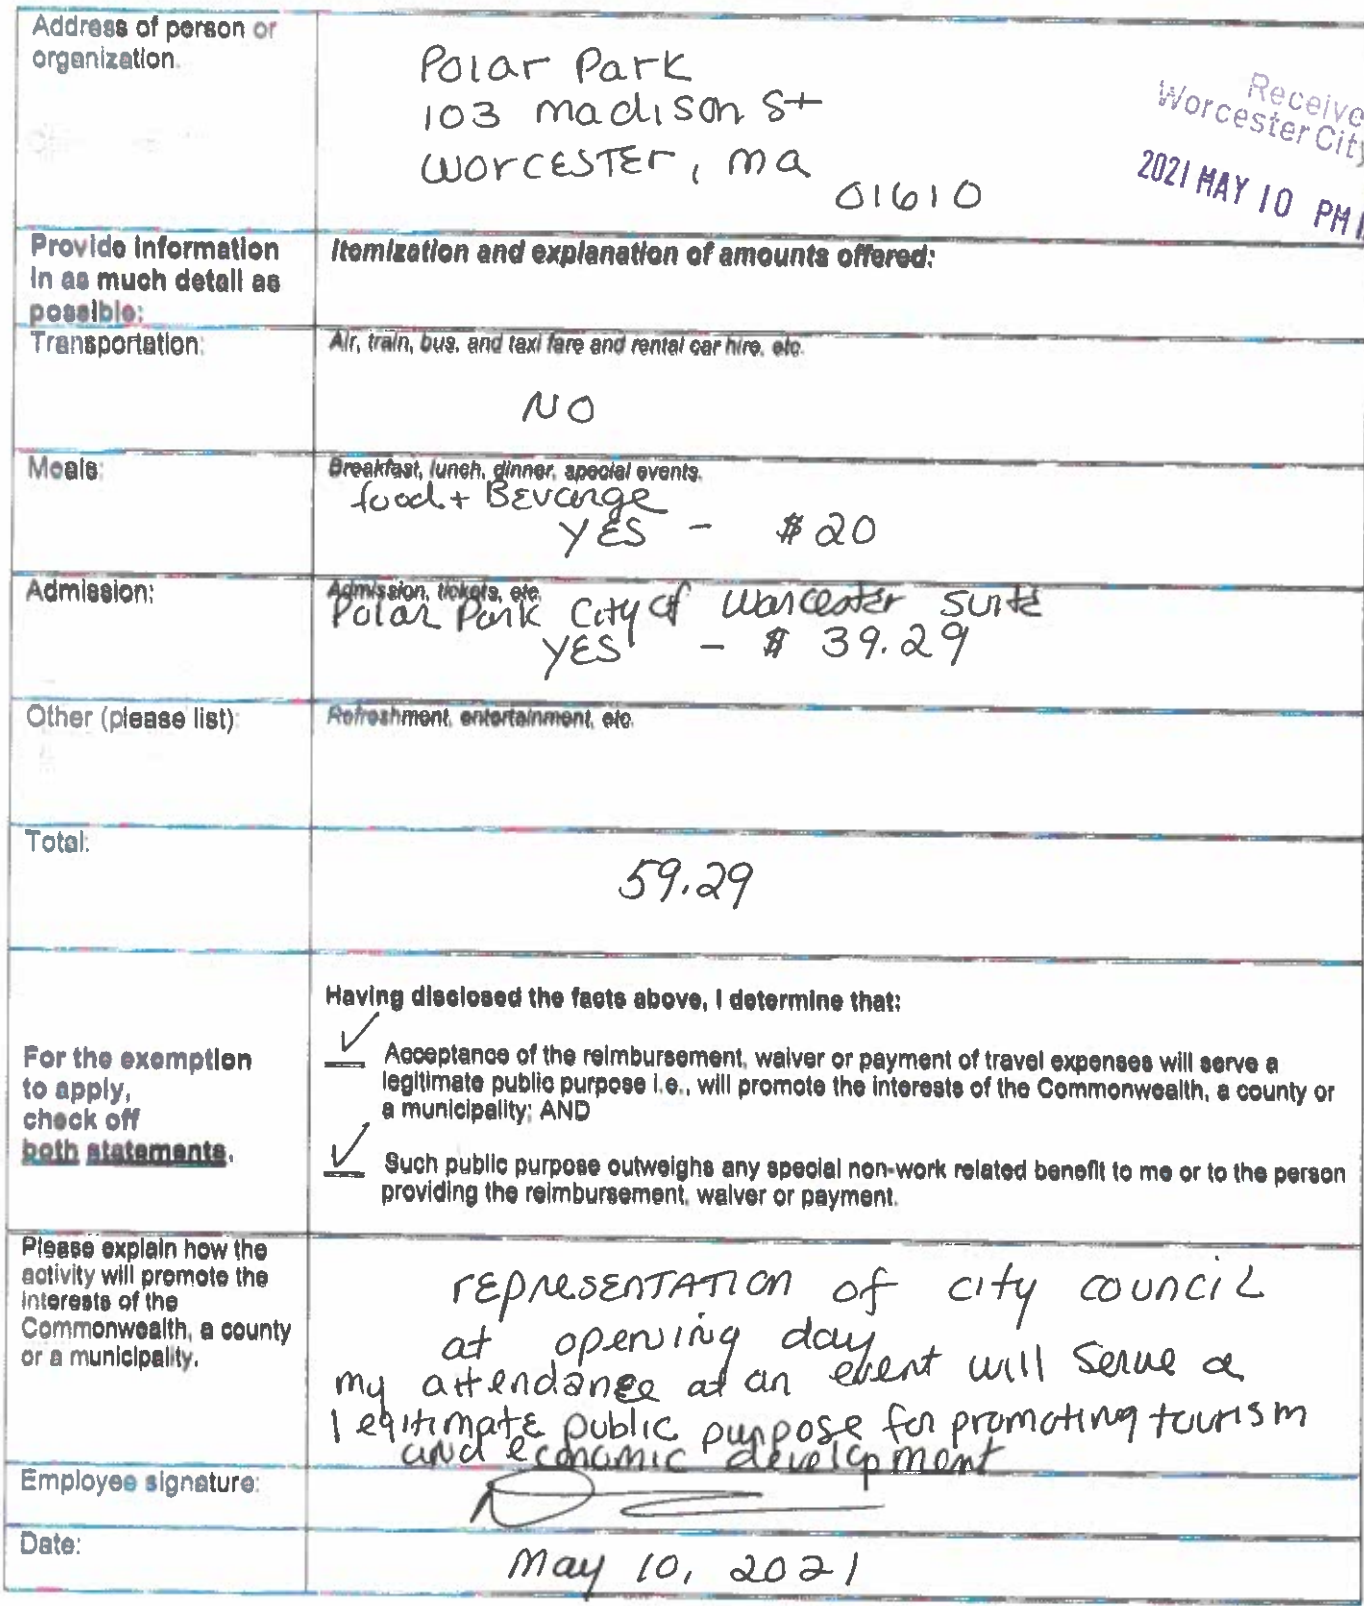 Address of person or
organization.
Polar Park
103 madison St
WORCESTER, ma
01610
Receive
Worcester City
2021 MAY 10 PM
Provide information
in as much detail as
possible:
Itemization and explanation of amounts offered:
Transportation:
Air, train, bus, and taxi fare and rental car hire, etc.
NO
Meals:
Breakfast, lunch, dinner, special events.
food + Bevarge
YES - $20
Admission:
Admission, tickets, etc.
Polar Park City of Worcester Suite
YES - $ 39.29
Other (please list):
Refreshment, entertainment, etc.
Total:
59.29
For the exemption
to apply,
check off
both statements.
Having disclosed the facts above, I determine that:
Acceptance of the reimbursement, waiver or payment of travel expenses will serve a
legitimate public purpose i.e., will promote the interests of the Commonwealth, a county or
a municipality; AND
Such public purpose outweighs any special non-work related benefit to me or to the person
providing the reimbursement, waiver or payment.
Please explain how the
activity will promote the
interests of the
Commonwealth, a county
or a municipality.
REPRESENTATION of city council
at opening day
my attendance at an event will serve a
legitimate public purpose for promoting tourism
and economic development
Employee signature:
Date:
May 10, 2021